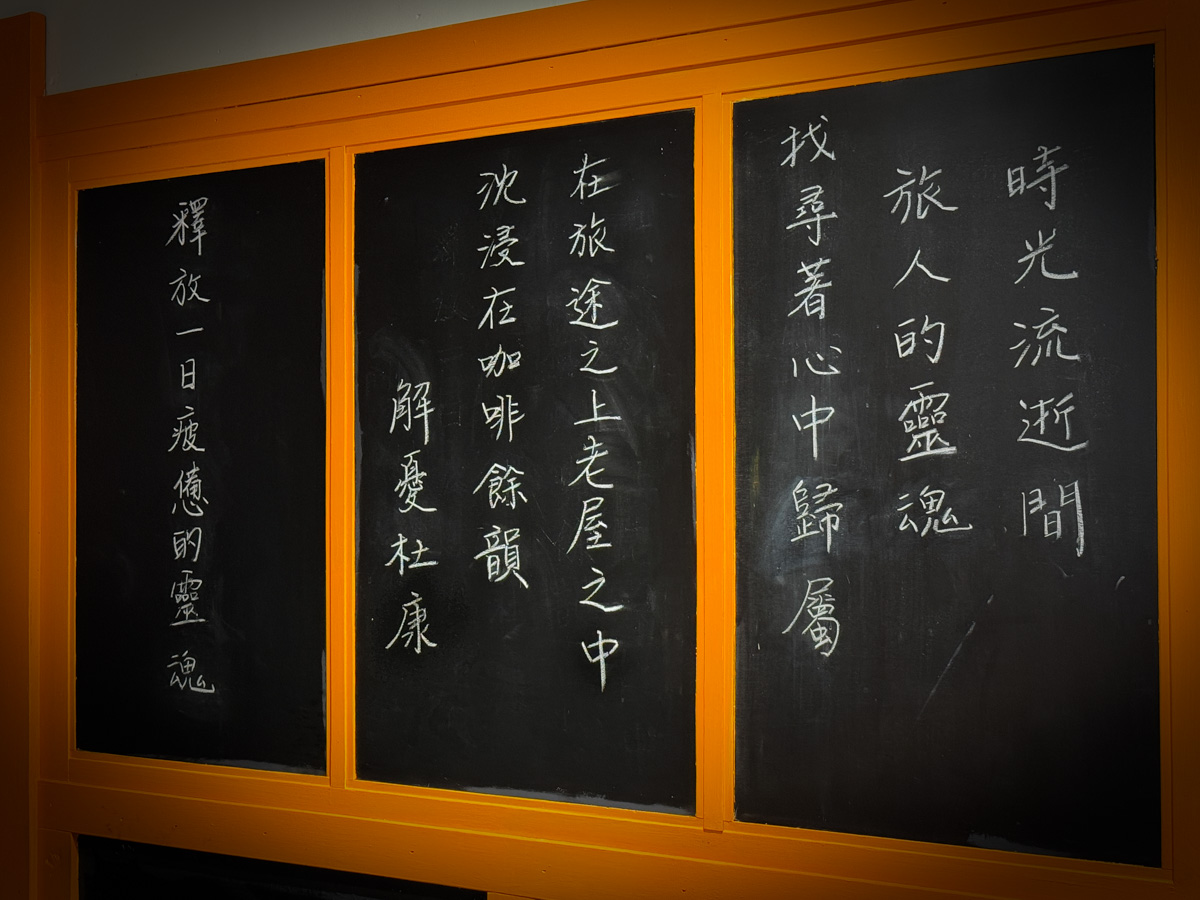 時光流逝間
旅人的靈魂
找尋著心中歸屬
在旅途之上老屋之中
沈浸在咖啡餘韻
解憂杜康
釋放一日疲憊的靈魂